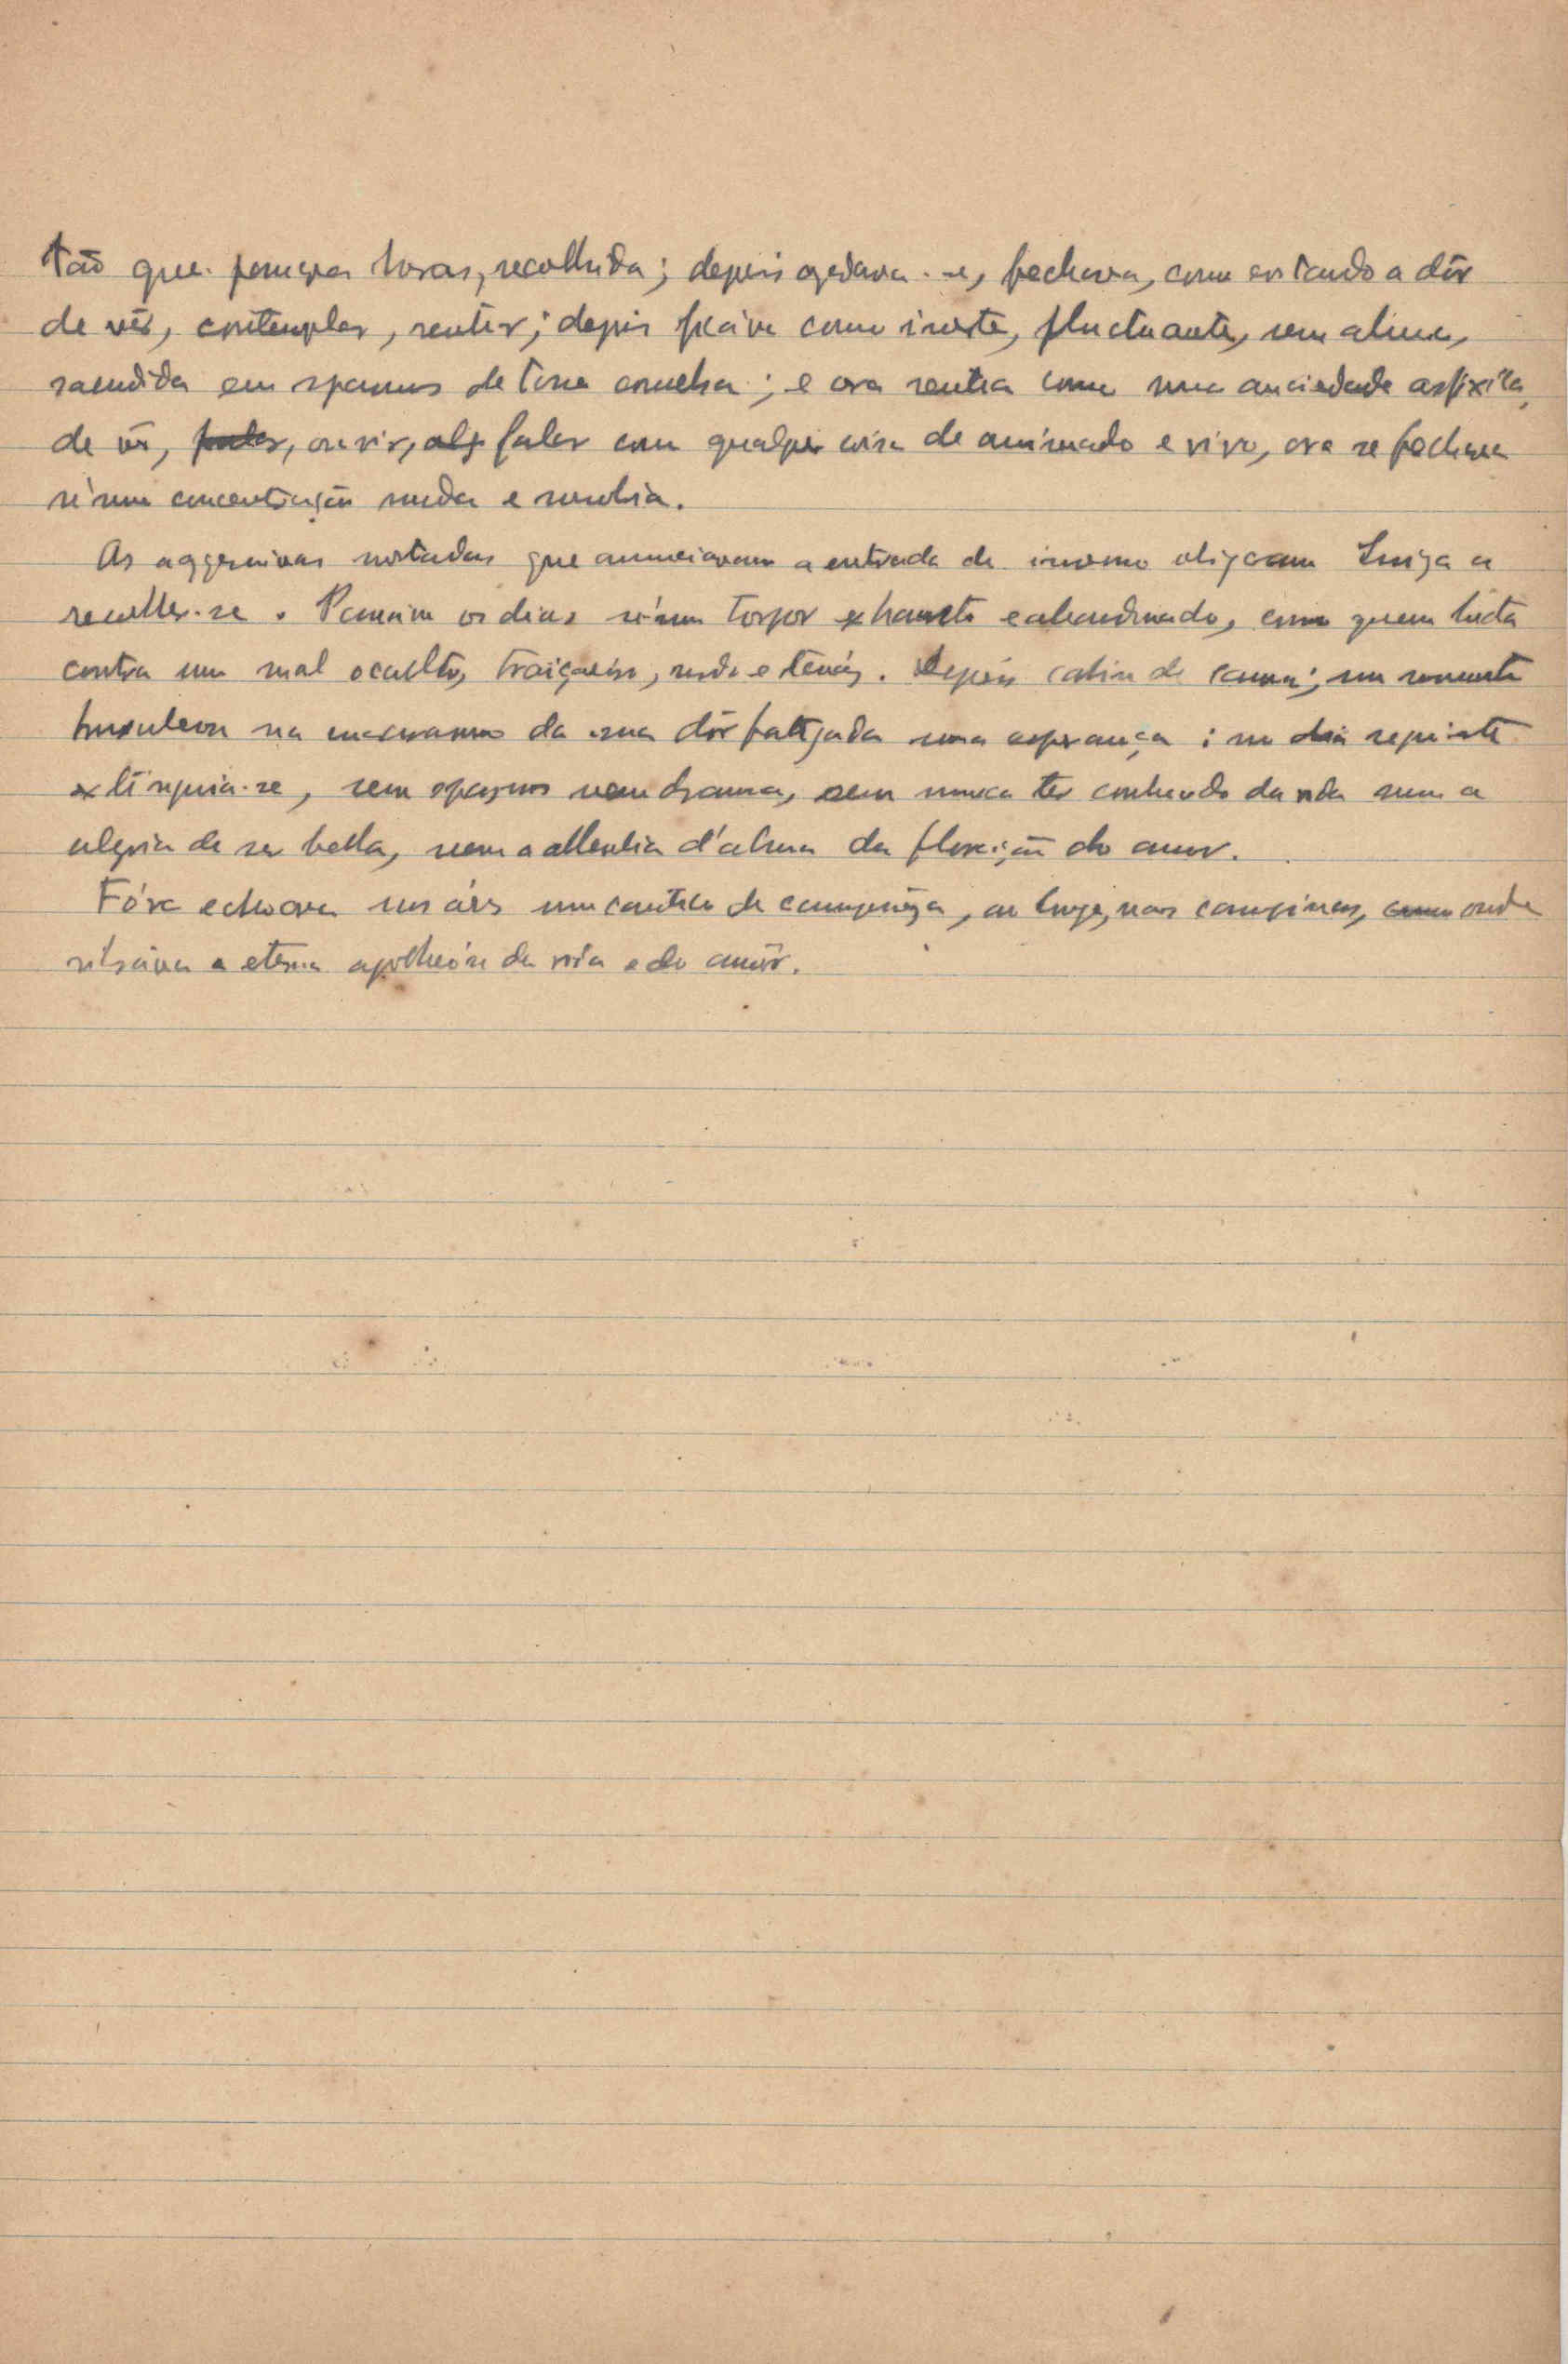 tão que passava horas, recolhida; depois quedava-se, fechava, como evitando a dôr
de vêr, contemplar, sentir; depois ficáva como inerte, fluctuante, sem alma,
sacudida em spasmos de tosse convulsa; e ora sentia como uma anciedade asfixica
de vêr, falar, ouvir, alg falar com qualquer coisa de animado e vivo, ora se fechava
n'uma concentração muda e sombria.
As aggressivas nortadas que annunciavam a entrada do inverno obrigaram Luiza a
recolher-se. Passáva os dias n'um torpor exhausto e abandonado, como quem lucta
contra um mal occulto, traiçoeiro, rude e tenáz. Depois cahiu de cama; um momento
na da sua dôr fatigada uma esperança; no dia seguinte
extinguia-se, sem espasmos nem drama, sem nunca ter conhecido da vida nem a
alegria de ser bella, nem a d'alma da floração do amor.
Fóra echoava nos áres um cantico de, ao longe, nas campinas, como onde
a eterna apotheóse da vida e do amôr.